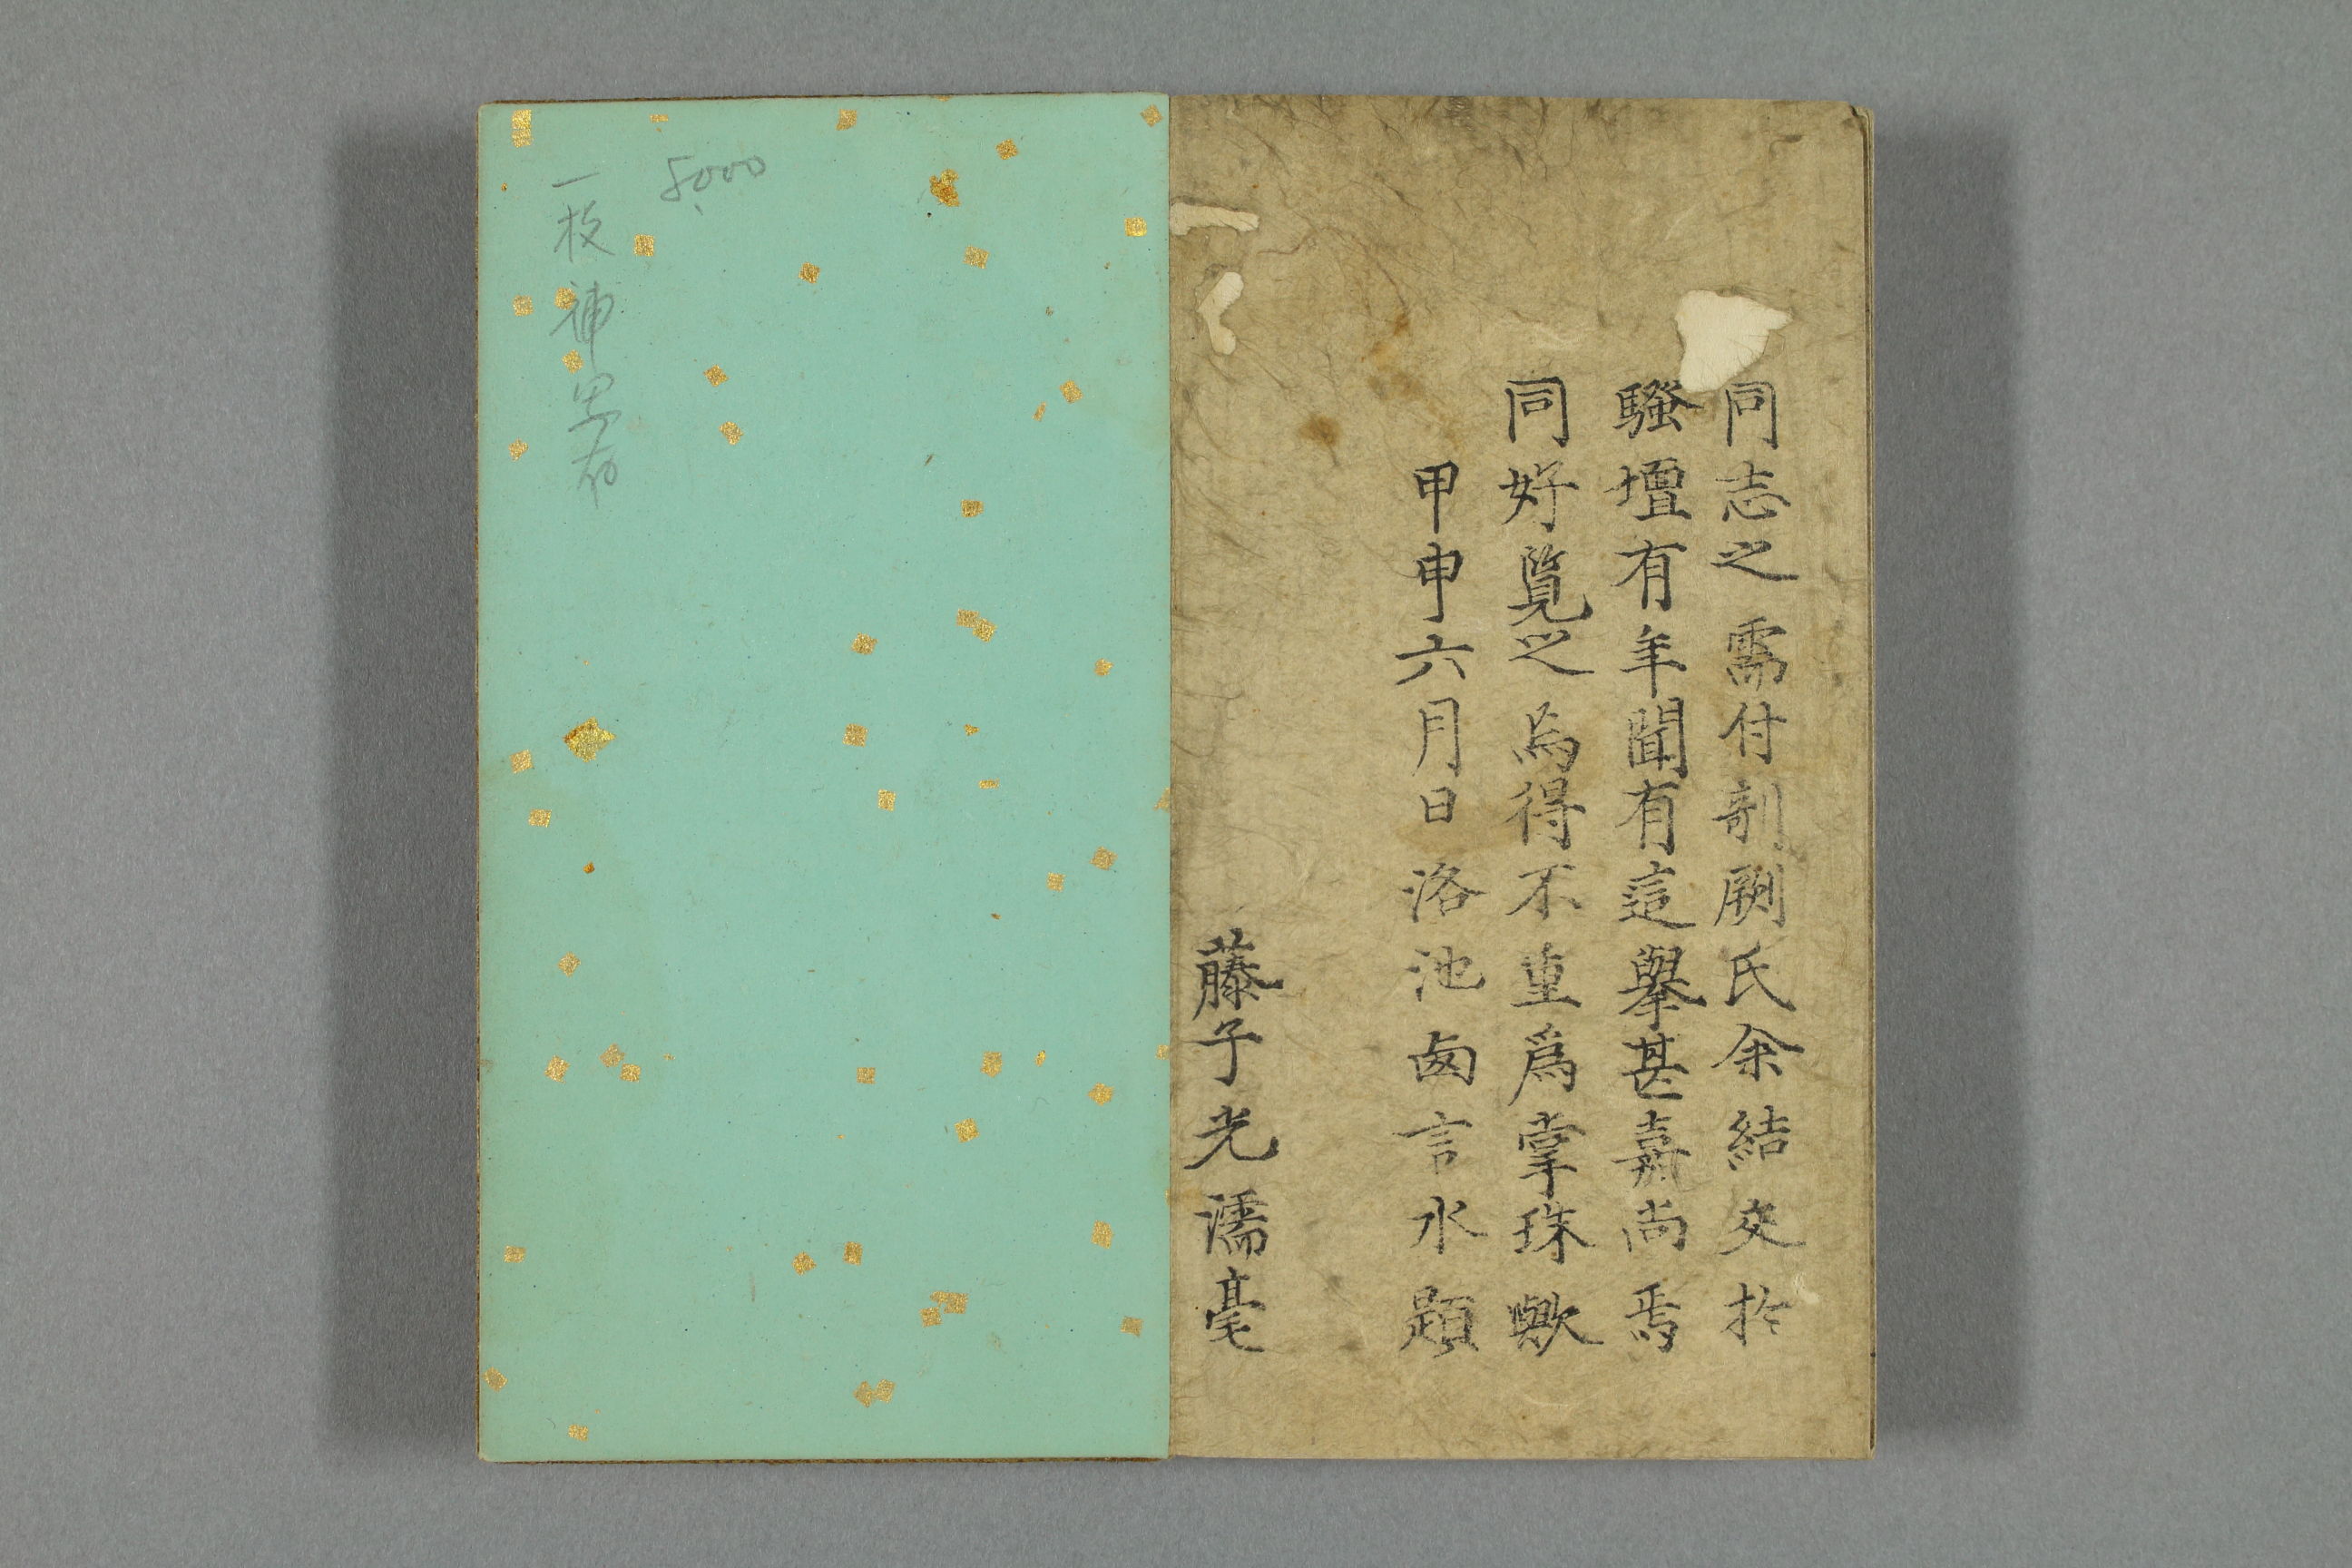 同志之需付剞劂氏余結交於
騷壇有年聞有這擧甚嘉尚焉
同好覧之烏得不重爲掌珠歟
甲申六月日洛池凾言水題
藤子光濡毫
5,000
一枚補写有